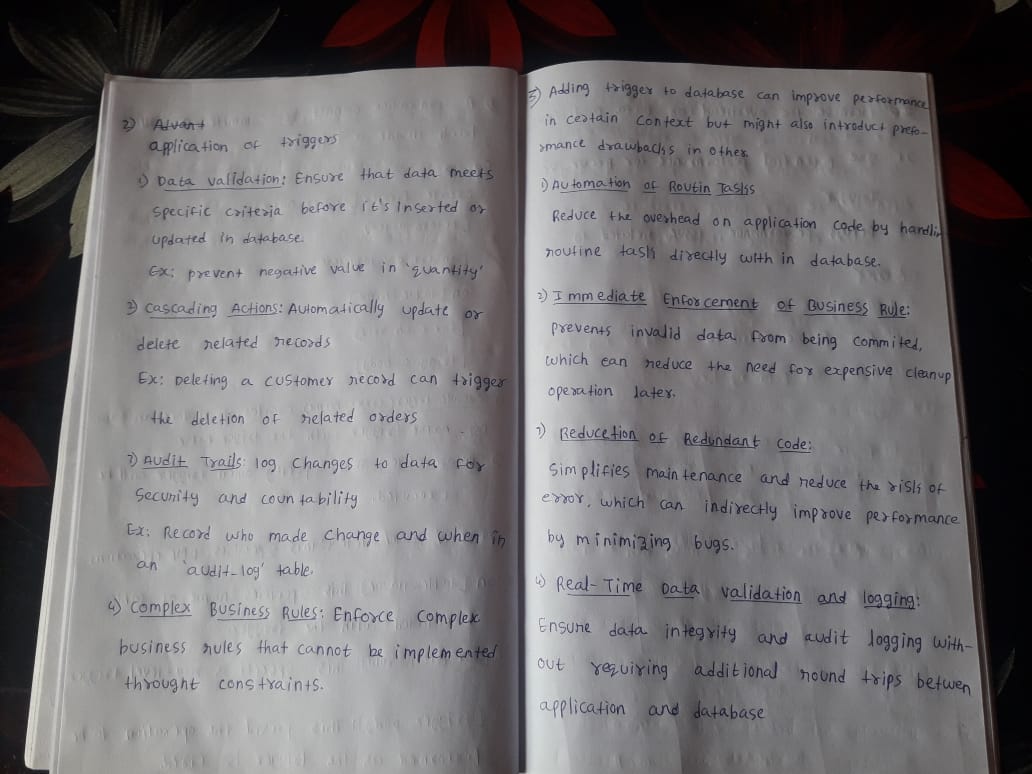 2) Advant
application of triggers
1) Data validation: Ensure that data meets
specific criteria before it's Inserted or
updated in database.
Ex: prevent negative value in 'quantity'
2) Cascading Actions: Automatically update or
delete related records
Ex: Deleting a customer record can trigger
the deletion of related orders
3) Audit Trails: log changes to data for
Security and countability
Ex: Record who made change and when in
an 'audit-log' table.
4) Complex Business Rules: Enforce complex
business rules that cannot be implemented
throught constraints.
3) Adding trigger to database can improve performance
in certain context but might also introduct prefo-
rmance drawbacks in other.
1) Automation of Routin Tasks
Reduce the overhead on application code by handlin
routine task directly with in database.
2) Immediate Enforcement of Business Rule:
prevents invalid data from being commited,
which can reduce the need for expensive cleanup
operation later.
3) Reducetion of Redundant code:
Simplifies maintenance and reduce the risk of
error, which can indirectly improve performance
by minimizing bugs.
4) Real-Time Data validation and logging:
Ensure data integrity and audit logging with-
out requiring additional round trips betwen
application and database